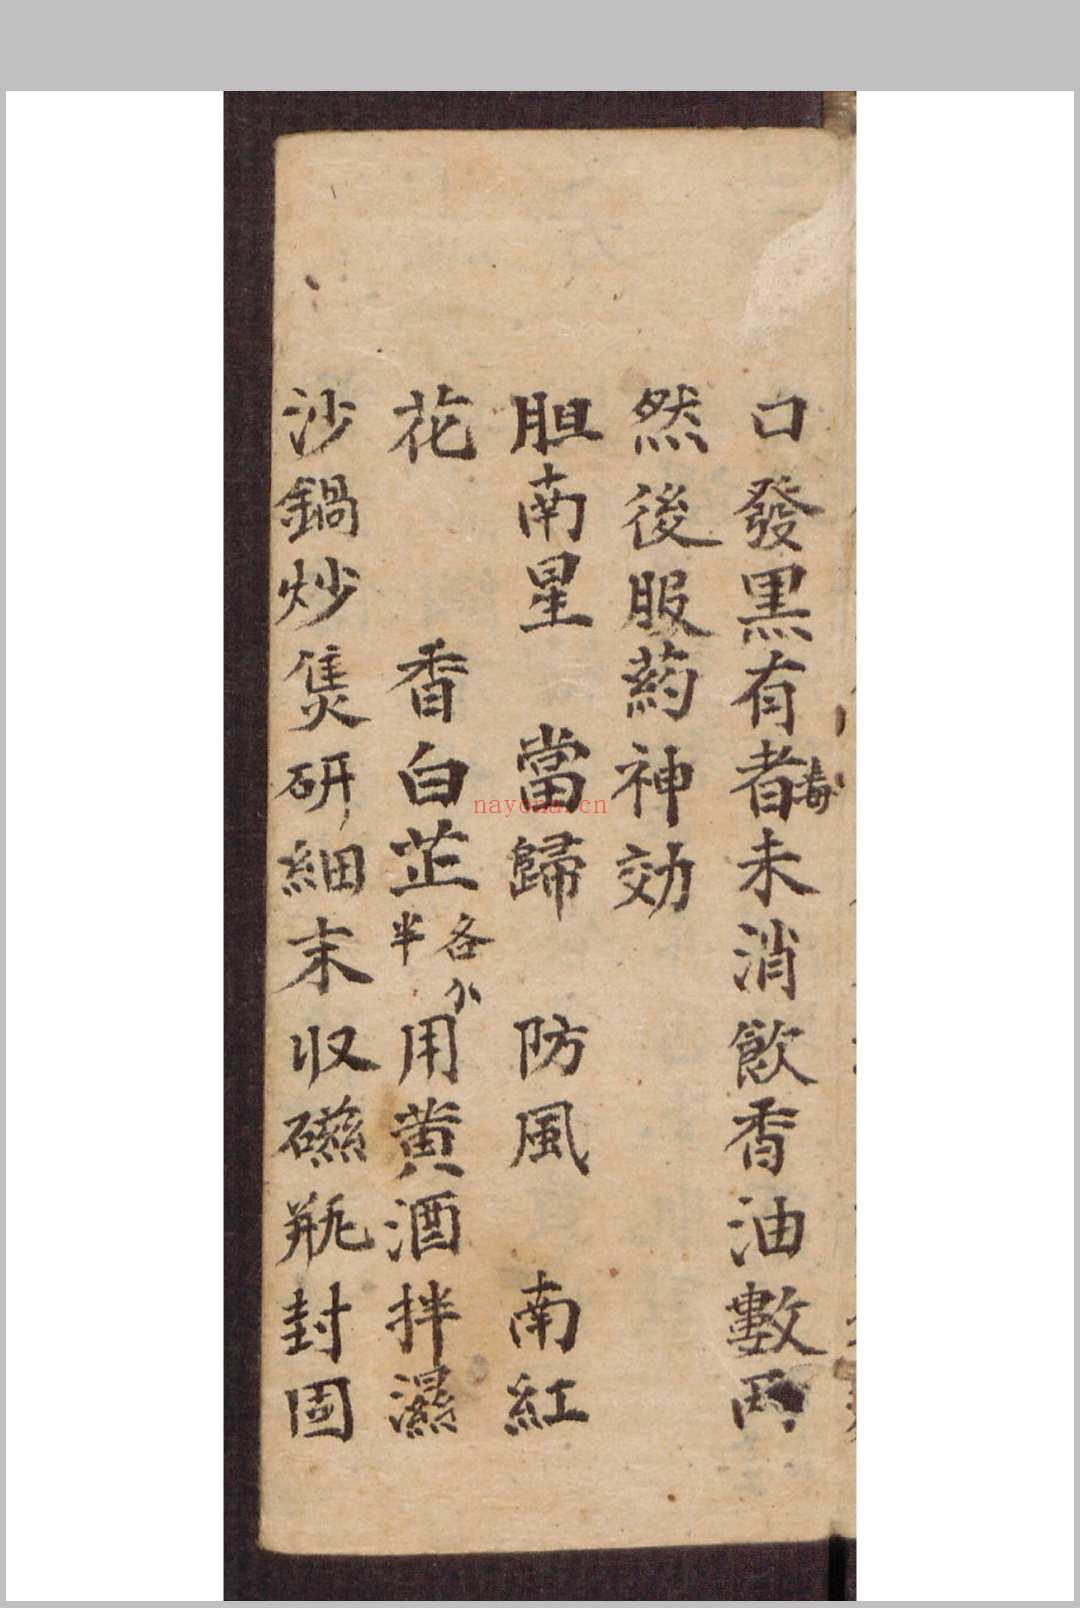 口發黑有毒者未消飲香油數兩
然後服药神効
胆南星 當歸 防風 南紅
花 香白芷各半分用黄酒拌濕
沙鍋炒隻研細末収磁瓶封固
nayona.cn